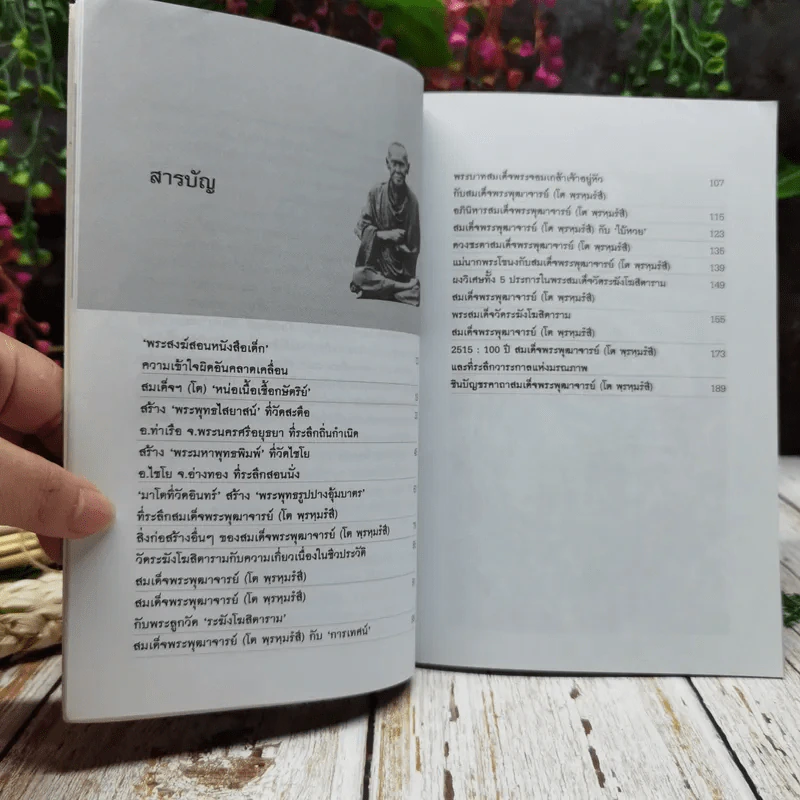 สารบัญ
'พระสงฆ์สอนหนังสือเด็ก'
ความเข้าใจผิดอันคลาดเคลื่อน
สมเด็จฯ (โต) 'หน่อเนื้อเชื้อกษัตริย์'
สร้าง 'พระพุทธไสยาสน์' ที่วัดสะตือ
อ.ท่าเรือ จ.พระนครศรีอยุธยา ที่ระลึกถิ่นกำเนิด
สร้าง 'พระมหาพุทธพิมพ์' ที่วัดไชโย
อ.ไชโย จ.อ่างทอง ที่ระลึกสอนนั่ง
'มาโตที่วัดอินทร์' สร้าง 'พระพุทธรูปปางอุ้มบาตร'
ที่ระลึกสมเด็จพระพุฒาจารย์ (โต พฺรหฺมรํสี)
สิ่งก่อสร้างอื่นๆ ของสมเด็จพระพุฒาจารย์ (โต พฺรหฺมรํสี)
วัดระฆังโฆสิตารามกับความเกี่ยวเนื่องในชีวประวัติ
สมเด็จพระพุฒาจารย์ (โต พฺรหฺมรํสี)
สมเด็จพระพุฒาจารย์ (โต พฺรหฺมรํสี)
กับพระลูกวัด 'ระฆังโฆสิตาราม'
สมเด็จพระพุฒาจารย์ (โต พฺรหฺมรํสี) กับ 'การเทศน์'
พระบาทสมเด็จพระจอมเกล้าเจ้าอยู่หัว 107
กับสมเด็จพระพุฒาจารย์ (โต พฺรหฺมรํสี)
อภินิหารสมเด็จพระพุฒาจารย์ (โต พฺรหฺมรํสี) 115
สมเด็จพระพุฒาจารย์ (โต พฺรหฺมรํสี) กับ 'ใบ้หวย' 123
ดวงชะตาสมเด็จพระพุฒาจารย์ (โต พฺรหฺมรํสี) 135
แม่นากพระโขนงกับสมเด็จพระพุฒาจารย์ (โต พฺรหฺมรํสี) 139
ผงวิเศษทั้ง 5 ประการในพระสมเด็จวัดระฆังโฆสิตาราม 149
สมเด็จพระพุฒาจารย์ (โต พฺรหฺมรํสี)
พระสมเด็จวัดระฆังโฆสิตาราม 155
สมเด็จพระพุฒาจารย์ (โต พฺรหฺมรํสี)
2515 : 100 ปี สมเด็จพระพุฒาจารย์ (โต พฺรหฺมรํสี) 173
และที่ระลึกวาระกาลแห่งมรณภาพ
ชินบัญชรคาถาสมเด็จพระพุฒาจารย์ (โต พฺรหฺมรํสี) 189